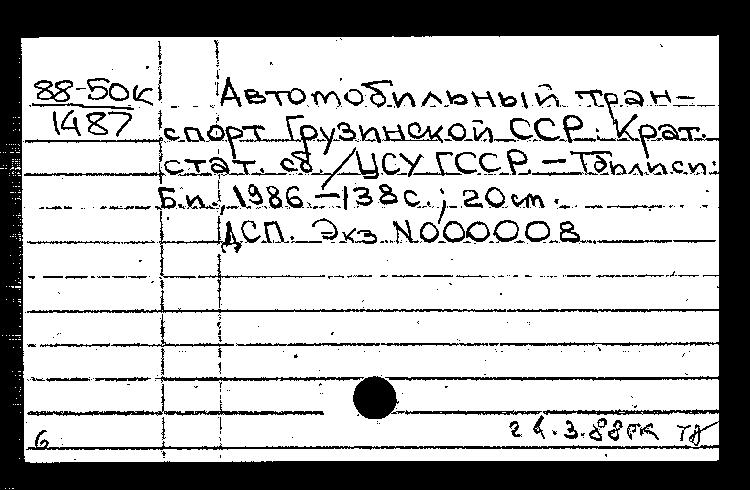 88-50к
1487
Автомобильный тран-
спорт Грузинской ССР: Крат.
стат. сб. / ЦСУ ГССР. – Тбилиси:
Б.и., 1986. – 138 с.; 20 см.
ДСП. Экз N000008
6 24.3.88